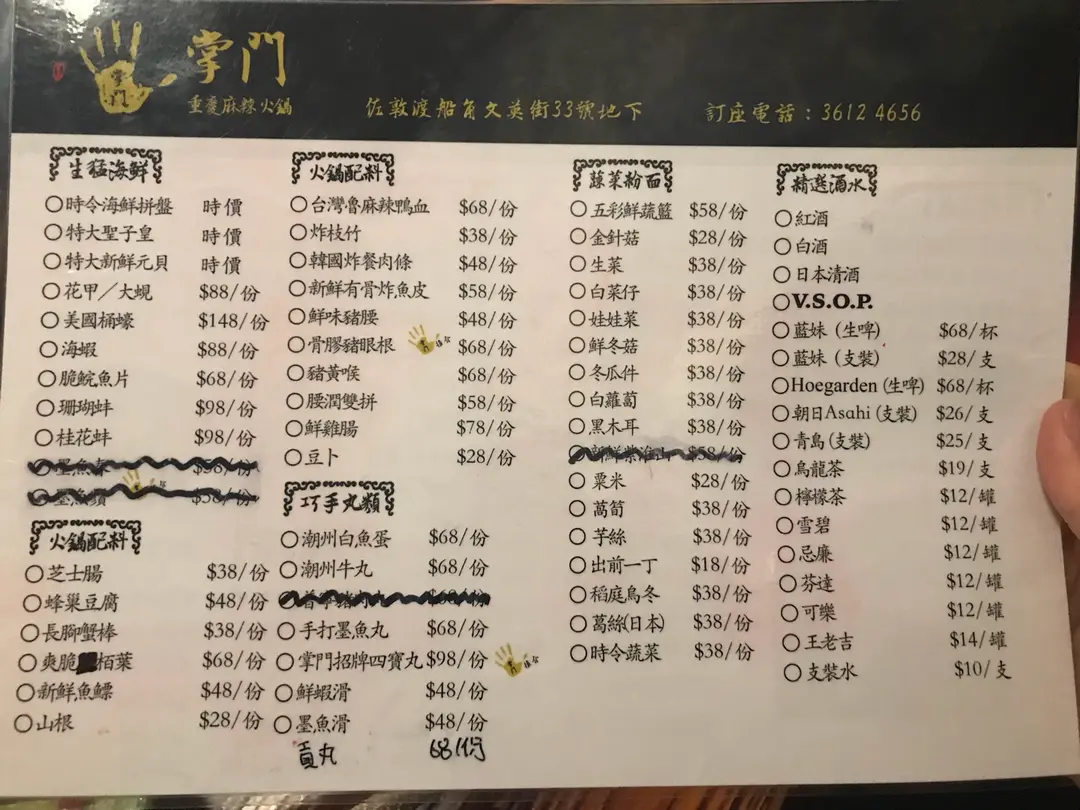 掌門
重慶麻辣火鍋 佐敦渡船角文英街33號地下 訂座電話：3612 4656
生猛海鮮
時令海鮮拼盤 時價
特大聖子皇 時價
特大新鮮元貝 時價
花甲／大蜆 $88/份
美國桶蠔 $148/份
海蝦 $88/份
脆鯇魚片 $68/份
珊瑚蚌 $98/份
桂花蚌 $98/份
火鍋配料
芝士腸 $38/份
蜂巢豆腐 $48/份
長腳蟹棒 $38/份
爽脆栢葉 $68/份
新鮮魚鰾 $48/份
山根 $28/份
火鍋配料
台灣魯麻辣鴨血 $68/份
炸枝竹 $38/份
韓國炸餐肉條 $48/份
新鮮有骨炸魚皮 $58/份
鮮味豬腰 $48/份
骨膠豬眼根 $68/份
豬黃喉 $68/份
腰潤雙拼 $58/份
鮮雞腸 $78/份
豆卜 $28/份
巧手丸類
潮州白魚蛋 $68/份
潮州牛丸 $68/份
手打墨魚丸 $68/份
掌門招牌四寶丸 $98/份
鮮蝦滑 $48/份
墨魚滑 $48/份
貢丸 68/份
蔬菜粉面
五彩鮮蔬籃 $58/份
金針菇 $28/份
生菜 $38/份
白菜仔 $38/份
娃娃菜 $38/份
鮮冬菇 $38/份
冬瓜件 $38/份
白蘿蔔 $38/份
黑木耳 $38/份
粟米 $28/份
萵筍 $38/份
芋絲 $38/份
出前一丁 $18/份
稻庭烏冬 $38/份
葛絲(日本) $38/份
時令蔬菜 $38/份
精選酒水
紅酒
白酒
日本清酒
V.S.O.P.
藍妹 (生啤) $68/杯
藍妹 (支裝) $28/支
Hoegarden (生啤) $68/杯
朝日Asahi (支裝) $26/支
青島 (支裝) $25/支
烏龍茶 $19/支
檸檬茶 $12/罐
雪碧 $12/罐
忌廉 $12/罐
芬達 $12/罐
可樂 $12/罐
王老吉 $14/罐
支裝水 $10/支